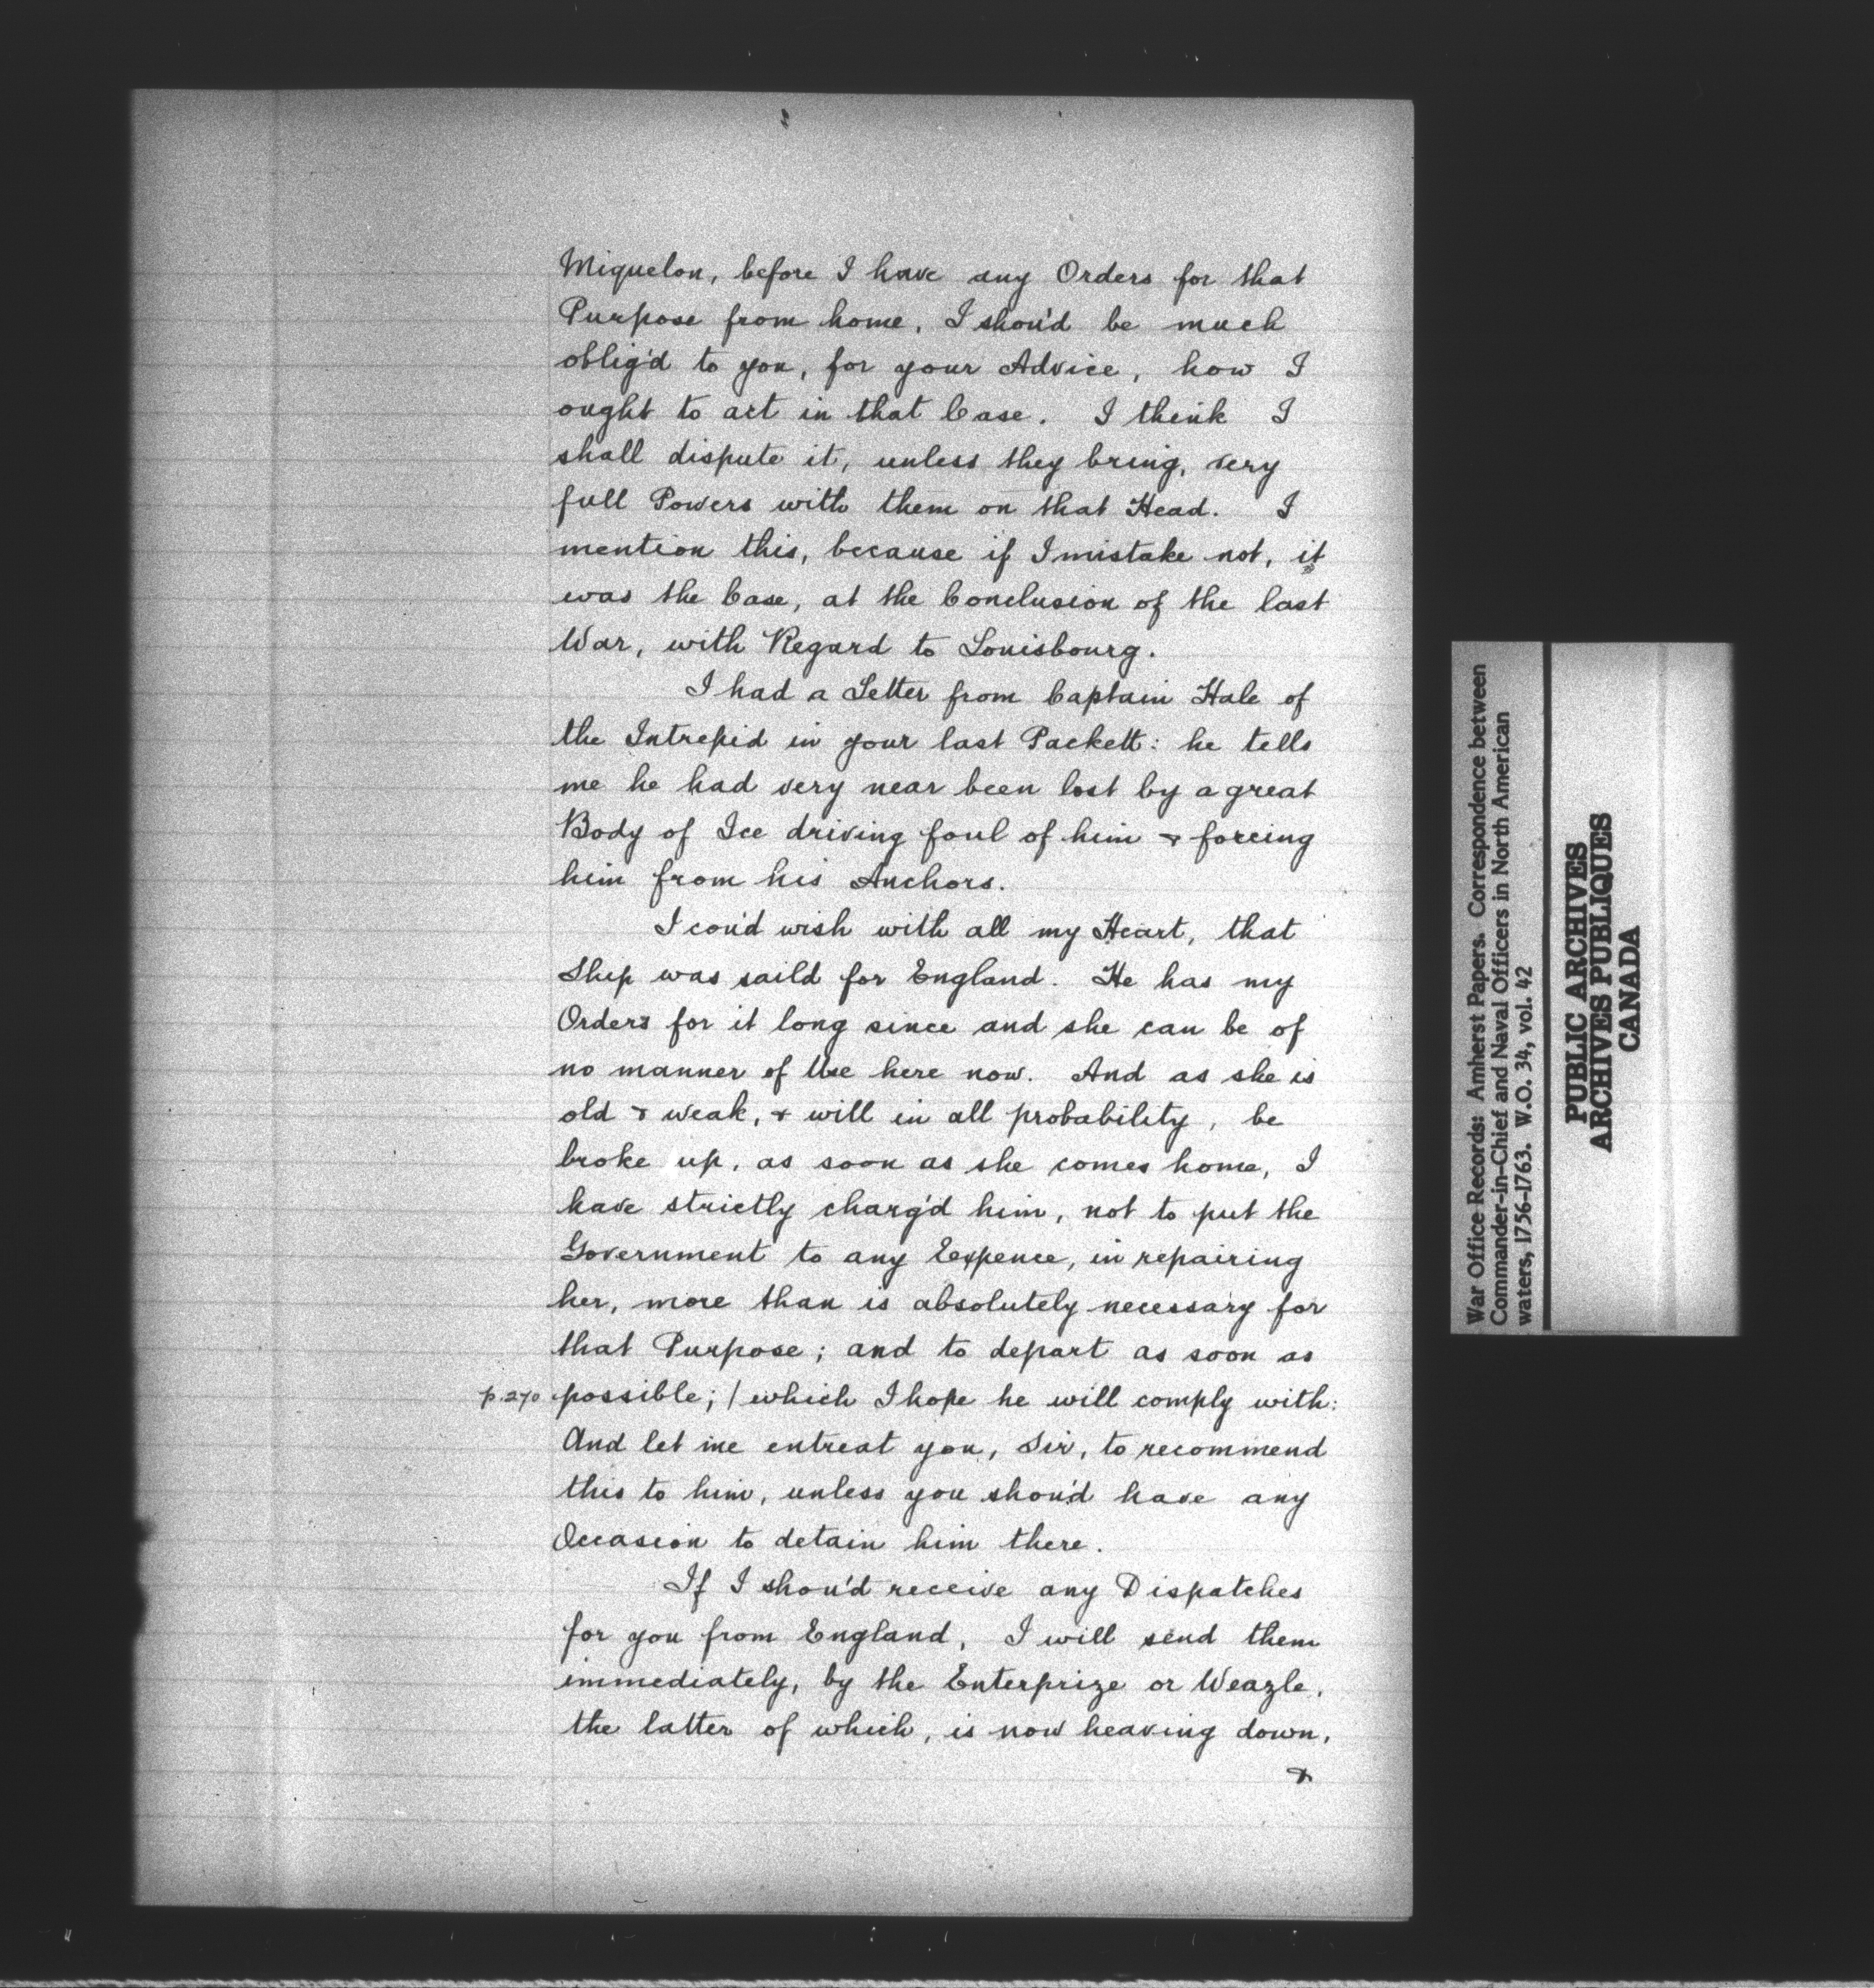 Miquelon, before I have any Orders for that
Purpose from home, I shou'd be much
oblig'd to you, for your Advice, how I
ought to act in that Case. I think I
shall dispute it, unless they bring, very
full Powers with them on that Head. I
mention this, because if I mistake not, it
was the Case, at the Conclusion of the last
War, with Regard to Louisbourg.
I had a Letter from Captain Hale of
the Intrepid in your last Packett: he tells
me he had very near been lost by a great
Body of Ice driving foul of him & forcing
him from his Anchors.
I cou'd wish with all my Heart, that
Ship was saild for England. He has my
Orders for it long since and she can be of
no manner of Use here now. And as she is
old & weak, & will in all probability, be
broke up, as soon as she comes home, I
have strictly charg'd him, not to put the
Government to any Expence, in repairing
her, more than is absolutely necessary for
that Purpose; and to depart as soon as
p.270 possible; / which I hope he will comply with:
And let me entreat you, Sir, to recommend
this to him, unless you shou'd have any
Occasion to detain him there.
If I shou'd receive any Dispatches
for you from England, I will send them
immediately, by the Enterprize or Weazle,
the latter of which, is now heaving down,
&
War Office Records: Amherst Papers. Correspondence between
Commander-in-Chief and Naval Officers in North American
waters, 1756-1763. W.O. 34, vol. 42
PUBLIC ARCHIVES
ARCHIVES PUBLIQUES
CANADA